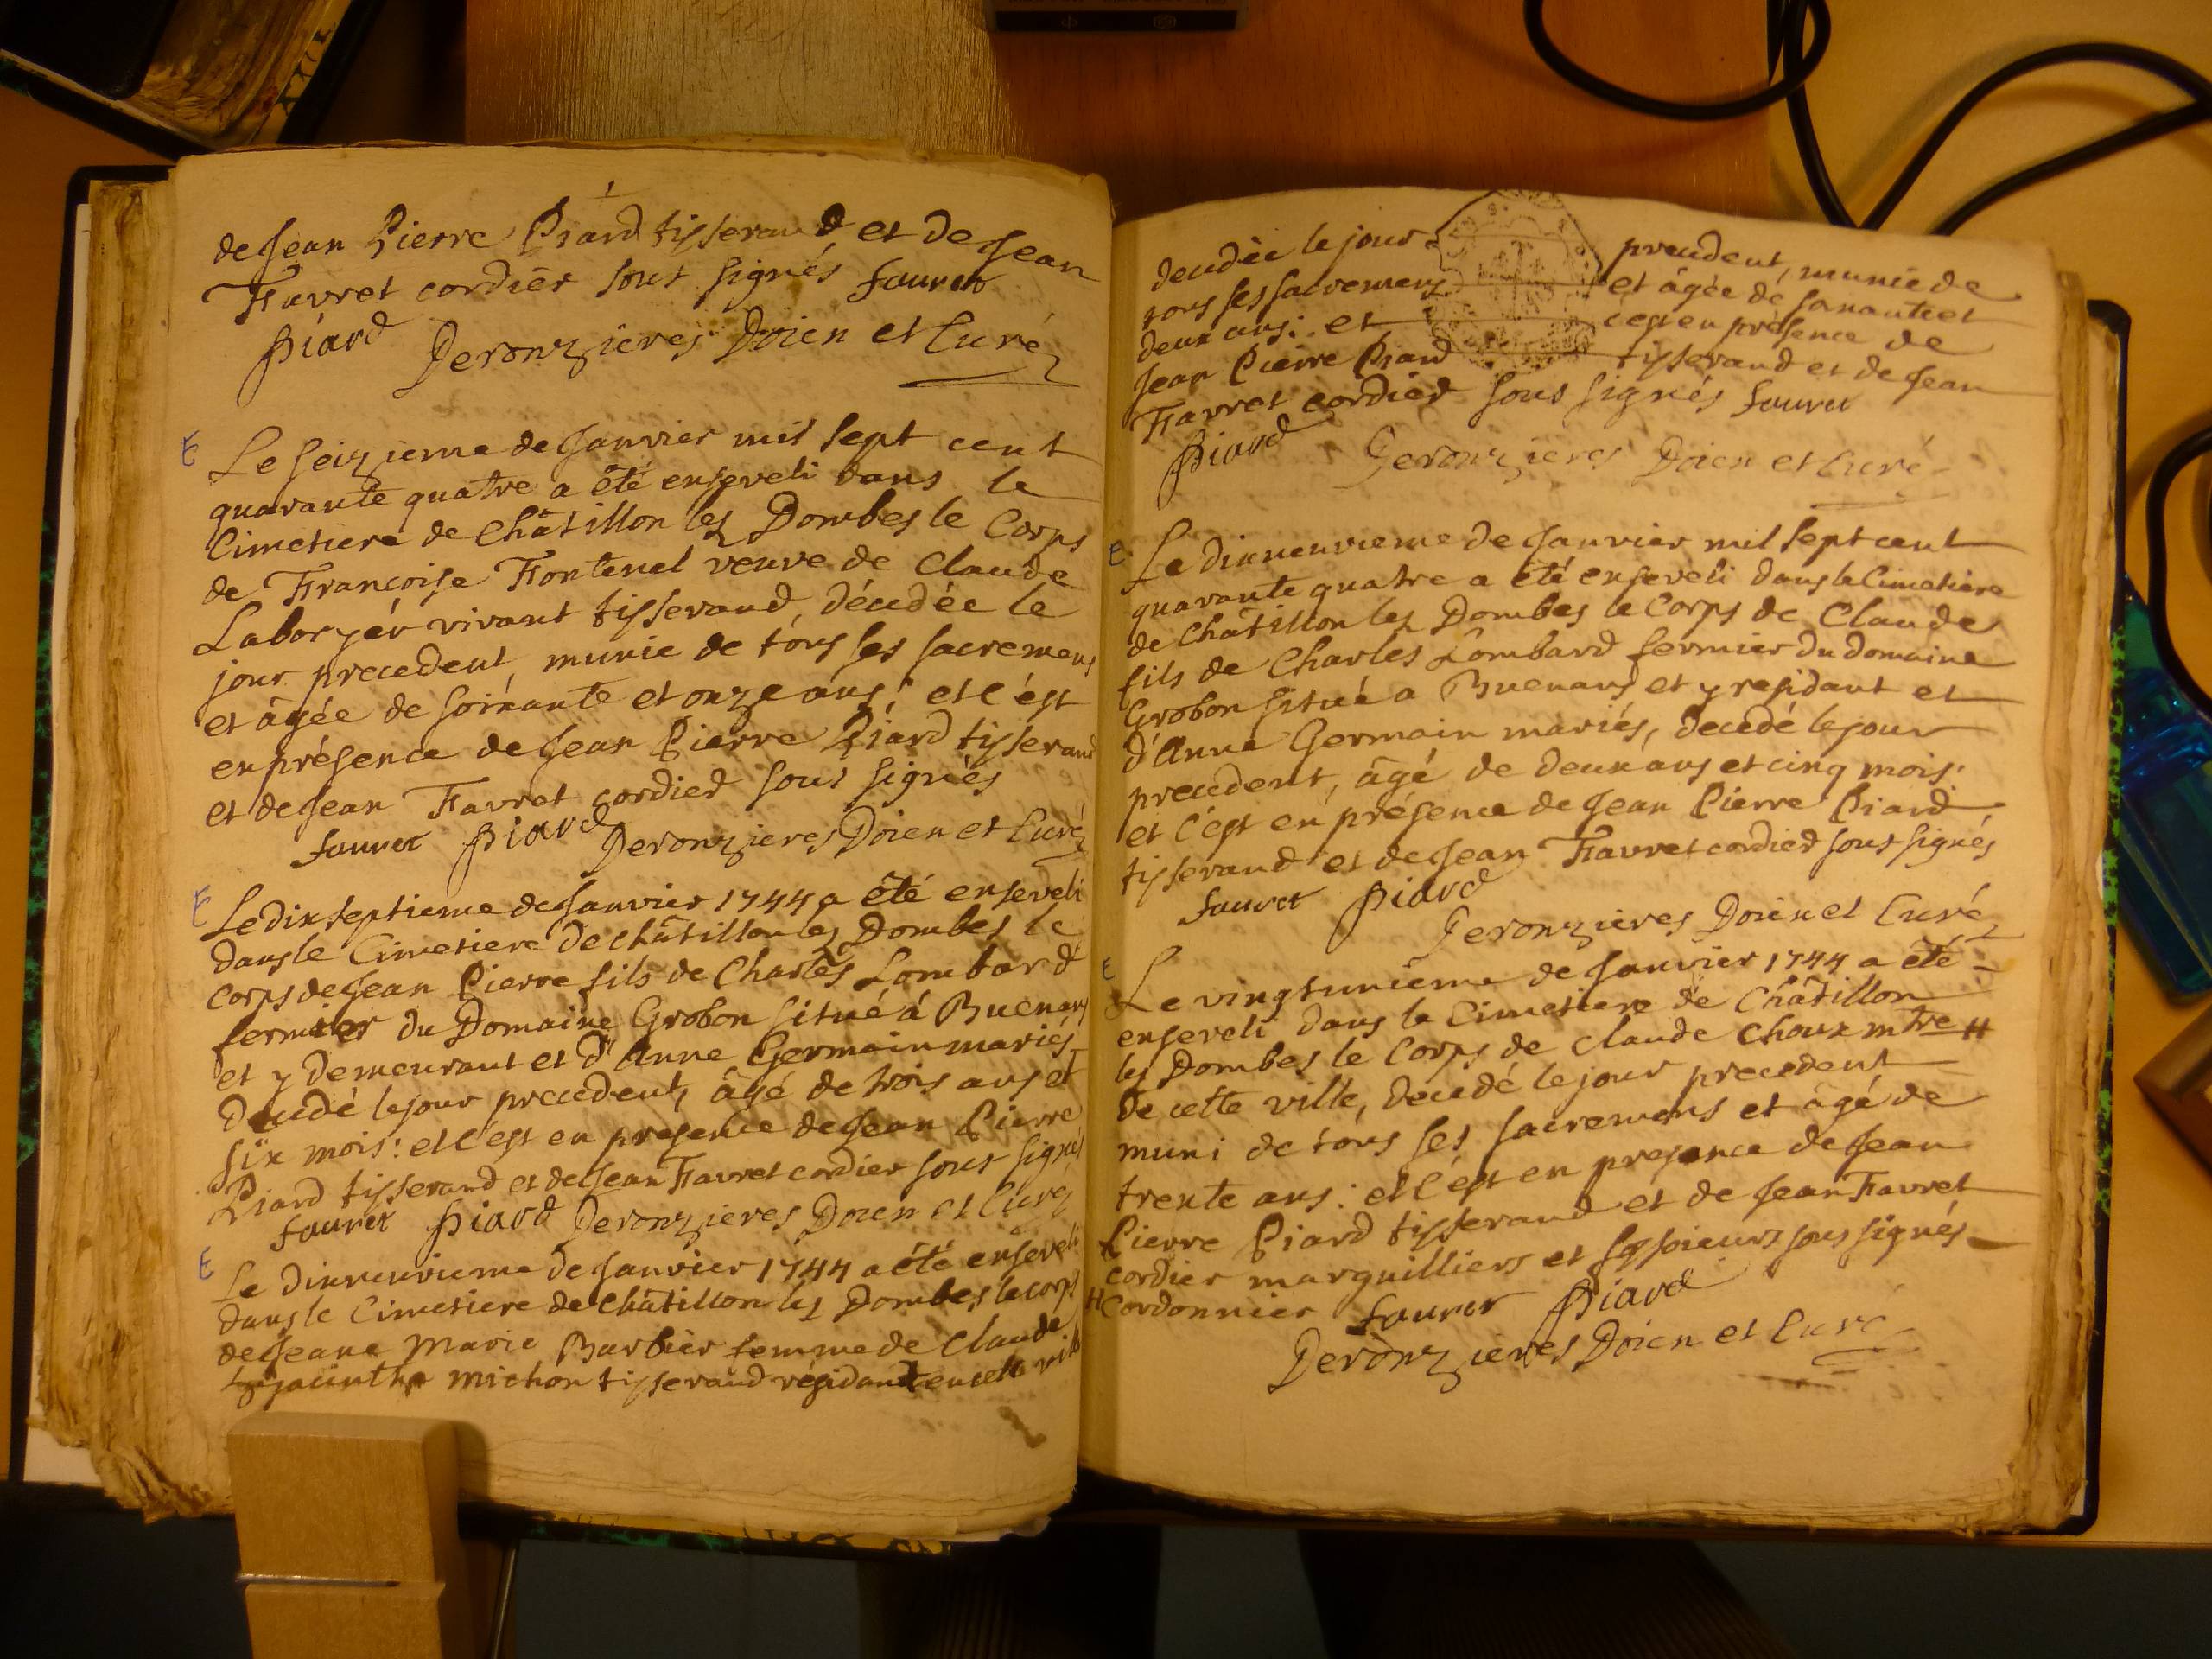 de Jean Pierre Piard tisserand et de Jean
Favret cordier sous signés favret
piard Deronzieres Doien et Curé
E
Le seizieme de Janvier mil sept cent
quarante quatre a été enseveli dans le
Cimetiere de Châtillon les Dombes le Corps
de Françoise Fontenel veuve de Claude
Laboryér vivant tisserand, décédée le
jour precedent, munie de tous ses sacremens
et âgée de soixante et onze ans; et c'est
en présence de Jean Pierre Piard tisserand
et de Jean Favret cordier sous signés
favret piard Deronzieres Doien et Curé
E
Le dixseptieme de Janvier 1744 a été enseveli
dans le Cimetiere de châtillon les Dombes le
corps de Jean Pierre fils de Charles Lombard
fermier du Domaine Grobon situé á Buenans
et y demeurant et d'Anne Germain mariés
decedé le jour precedent, âgé de trois ans et
six mois: et c'est en presence de Jean Pierre
Piard tisserand et de Jean Favret cordier sous signés
favret piard Deronzieres Doien et Curé
E
Le dixneuvieme de Janvier 1744 a été enseveli
dans le Cimetiere de Châtillon les Dombes le corps
de Jeane Marie Barbier femme de Claude
hyacinthe Michon tisserand résidant en cette ville
decedée le jour precedent, munie de
tous ses sacremens et âgée de
deux ans: et c'est en présence de
Jean Pierre Piard tisserand et de Jean
Favret cordier sous signés favret
piard Deronzieres Doien et Curé
E
Le dixneuvieme de Janvier mil sept cent
quarante quatre a été enseveli dans le Cimetiere
de Châtillon les Dombes le Corps de Claude
fils de Charles Lombard fermier du domaine
Grobon situé a Buenans et y residant et
d'Anne Germain mariés, decedé le jour
precedent, âgé de deux ans et cinq mois:
et c'est en présence de Jean Pierre Piard
tisserand et de Jean Favret cordier sous signés
favret piard
Deronzieres Doien et Curé
E
Le vingtunieme de Janvier 1744 a été
enseveli dans le Cimetiere de Châtillon
les Dombes le Corps de Claude Choux mtre #
de cette ville, decedé le jour precedent
muni de tous ses sacremens et âgé de
trente ans: et c'est en presence de Jean
Pierre Piard tisserand et de Jean Favret
cordier marguilliers et fossoieurs sous signés
# Cordonnier favret piard
Deronzieres Doien et Curé